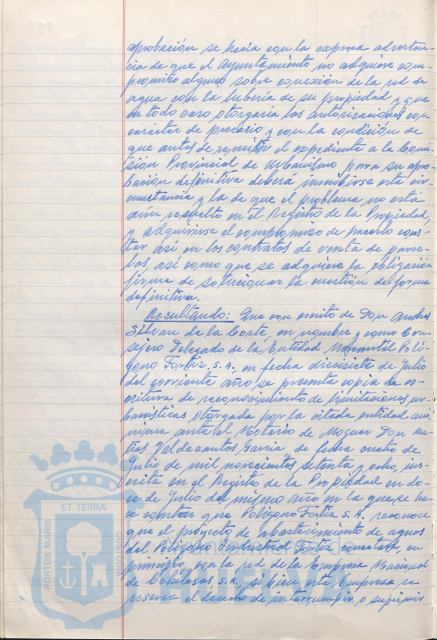 aprobación se hacía con la expresa adverten-
cia de que el Ayuntamiento no adquiere com-
promiso alguno sobre conexión de la red de
agua con la tubería de su propiedad y que
en todo caso otorgaría las autorizaciones con
carácter de precario y con la condición de
que antes de remitir el expediente a la Comi-
sión Provincial de Urbanismo para su apro-
bación definitiva deberá inscribirse esta cir-
cunstancia y la de que el problema no está
aún resuelto en el Registro de la Propiedad,
y adquirirse el compromiso de hacerlo cons-
tar así en los contratos de venta de parce-
las, así como que se adquiere la obligación
firme de solucionar la cuestión de forma
definitiva.
Resultando: Que con escrito de Don Andrés
de la Corte, en nombre y como Con-
sejero Delegado de la Entidad Mercantil Polí-
gono Fortiz S.A. en fecha diecisiete de Julio
del corriente año se presenta copia de es-
critura de reconocimiento de limitaciones ur-
banísticas otorgada por la citada entidad
ante el Notario de Moguer Don
Valdecantos García de fecha once de
Julio de mil novecientos setenta y ocho, ins-
crita en el Registro de la Propiedad en do-
ce de Julio del mismo año en la que se ha-
ce constar que Polígono Fortiz S.A. reconoce
que el proyecto de abastecimiento de aguas
del Polígono Industrial Fortiz conectará, en
principio, con la red de la Empresa Nacional
de Celulosas S.A., si bien esta Empresa se
reserva el derecho de interrumpir o suprimir
ET TERRA
PORTUS MARIS
CUSTODIA